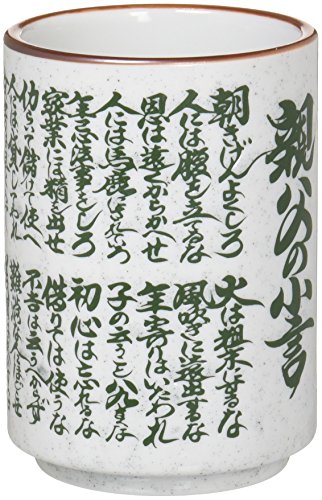 親父の小言
朝きげんよくしろ
人には腹を立てるな
恩は遠くからかへせ
人には馬鹿にされていろ
年忌法事をしろ
家業には精を出せ
働いて儲けて使へ
人には貸してやれ
火は粗末にするな
風吹きに遠出するな
年寄りはいたわれ
子の云うこと八九きくな
初心は忘れるな
借りては使うな
不吉は云うべからず
難渋な人にほどこせ